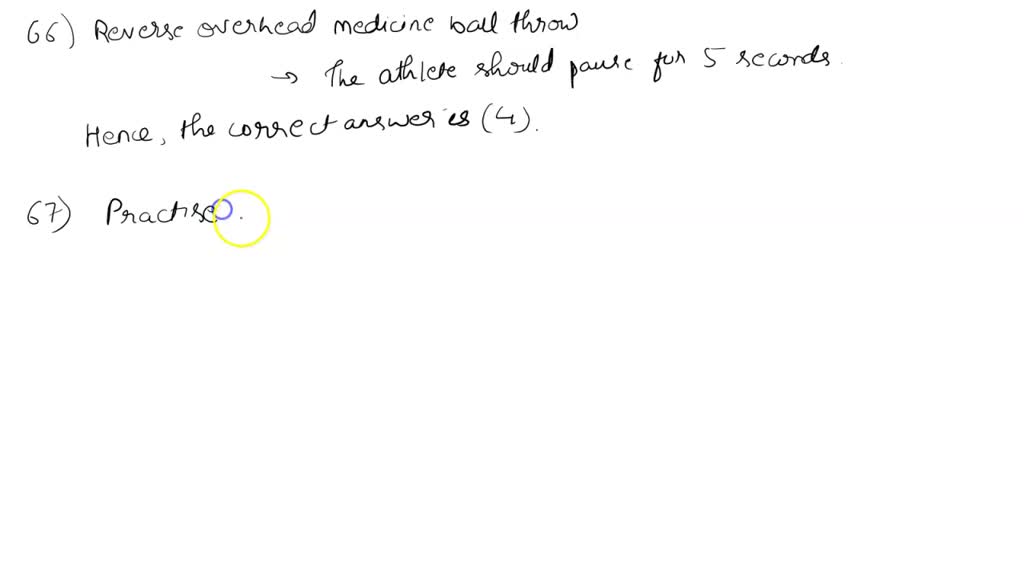 66) Reverse overhead medicine ball throw
→ The athlete should pause for 5 seconds.
Hence, the correct answer is (4).
67) Practise.